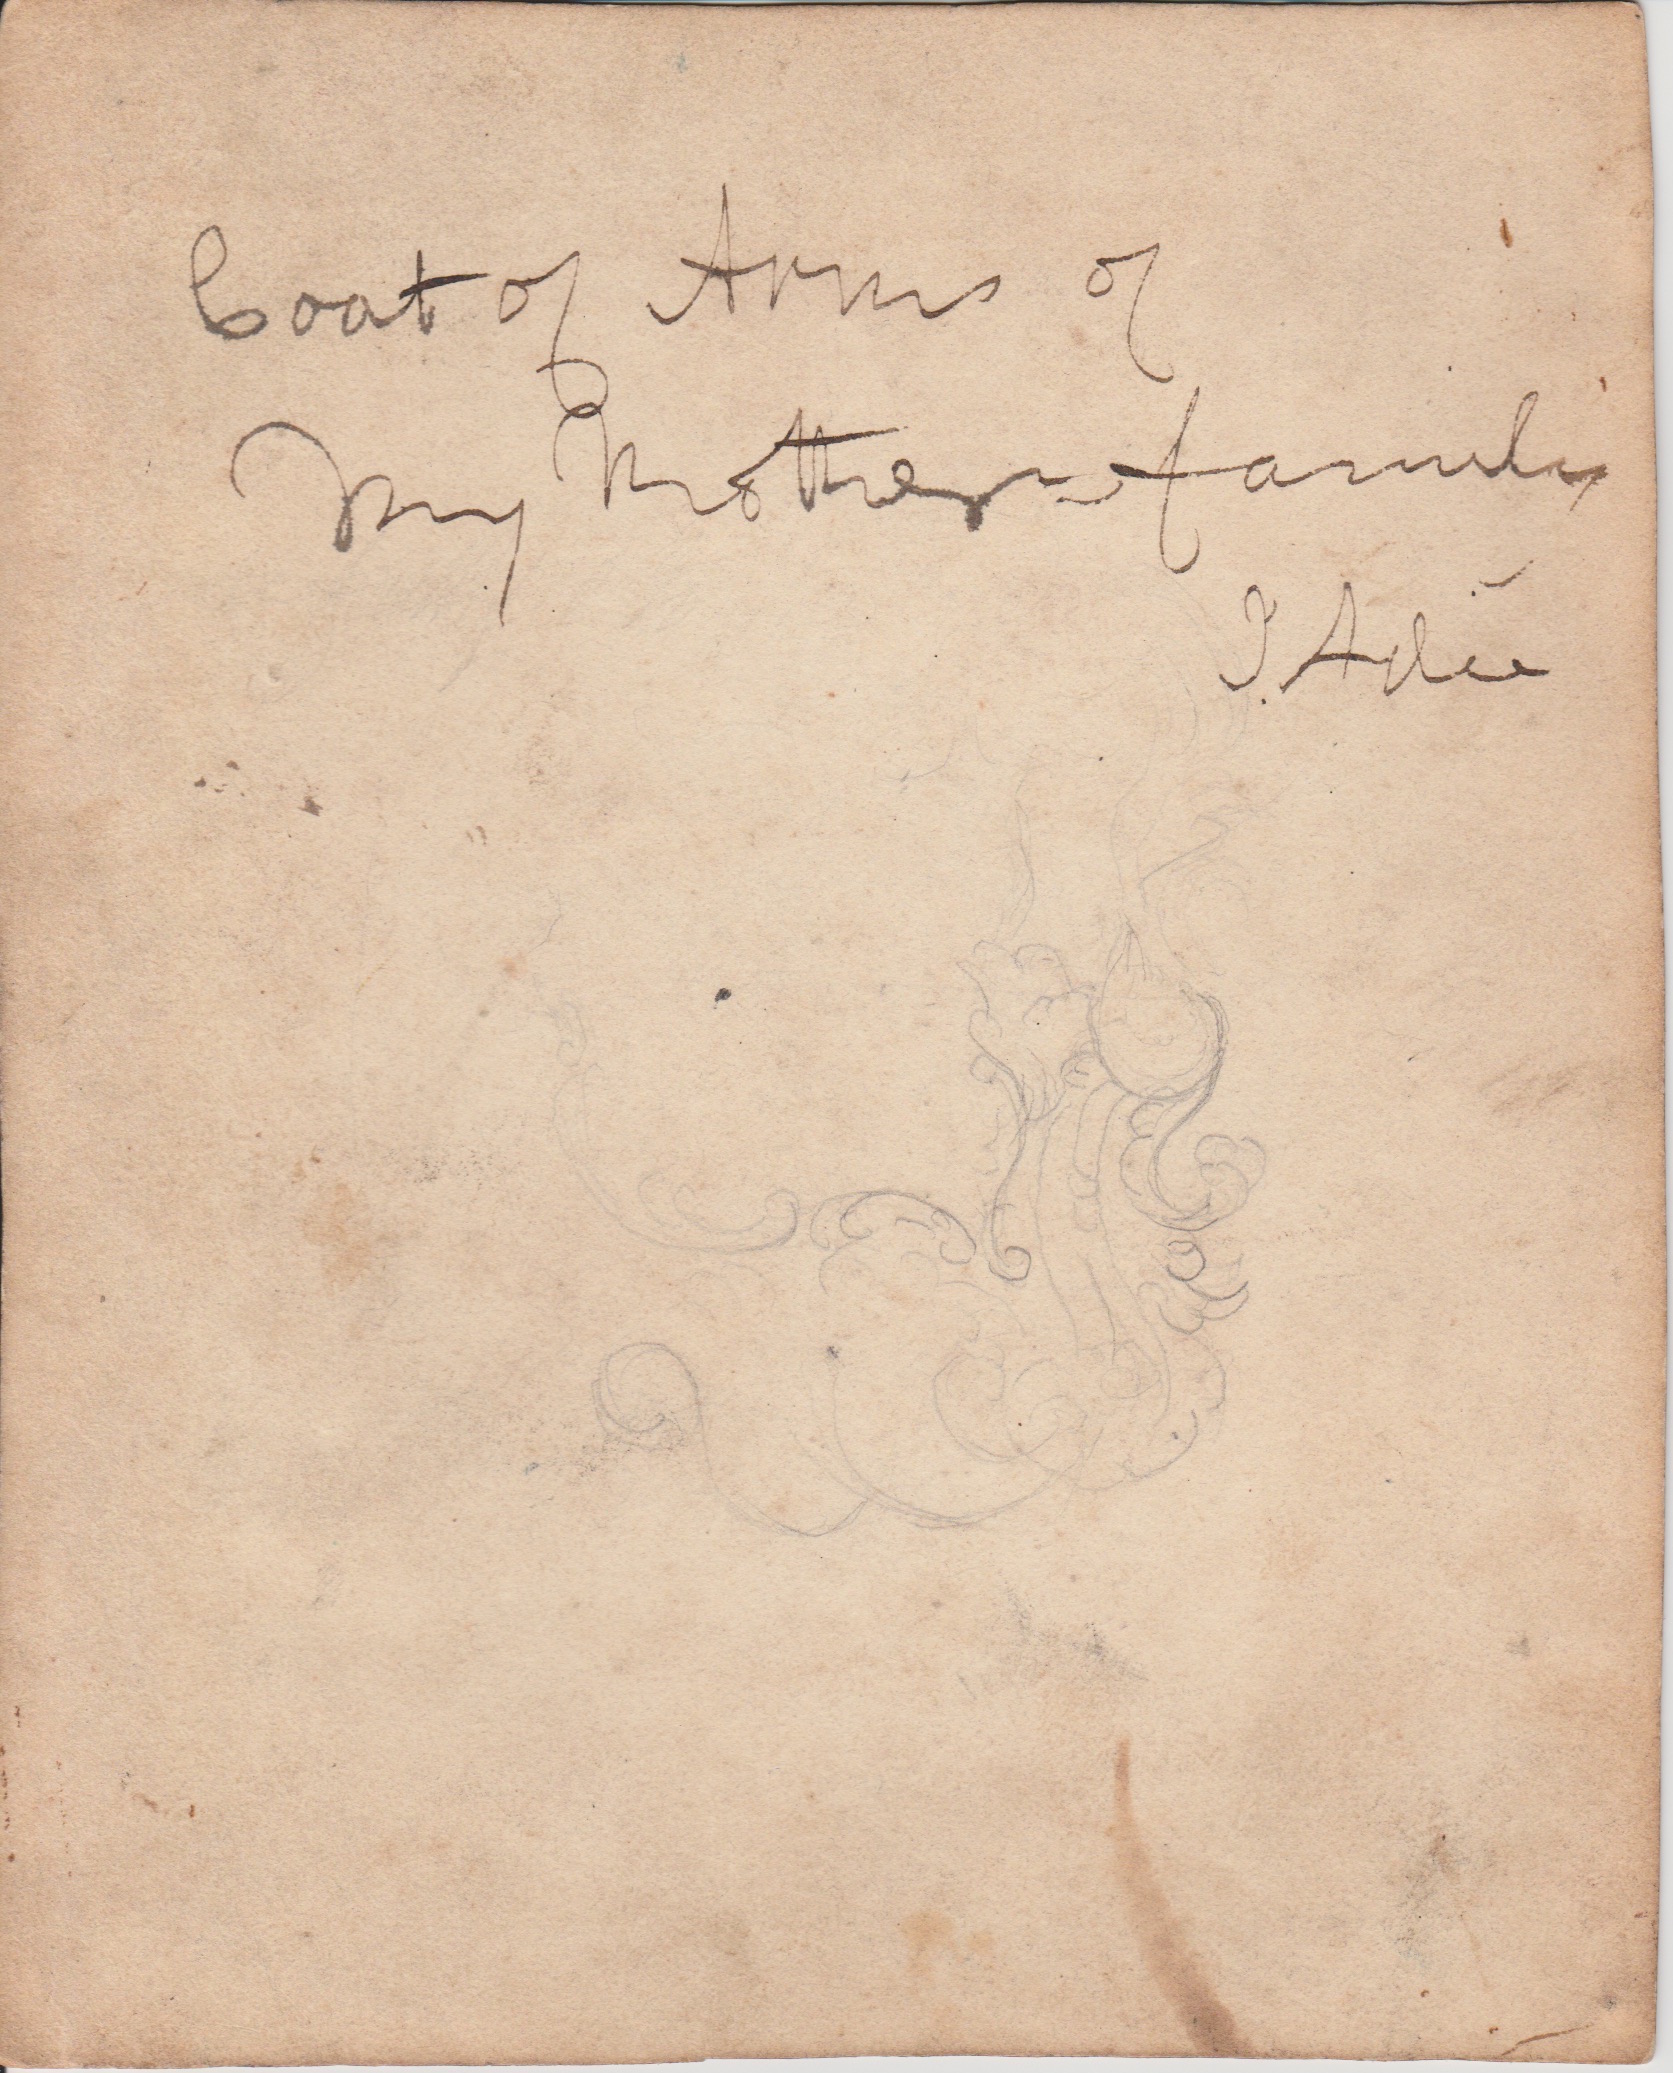 Coat of Arms of
My Mothers family
J. Adée